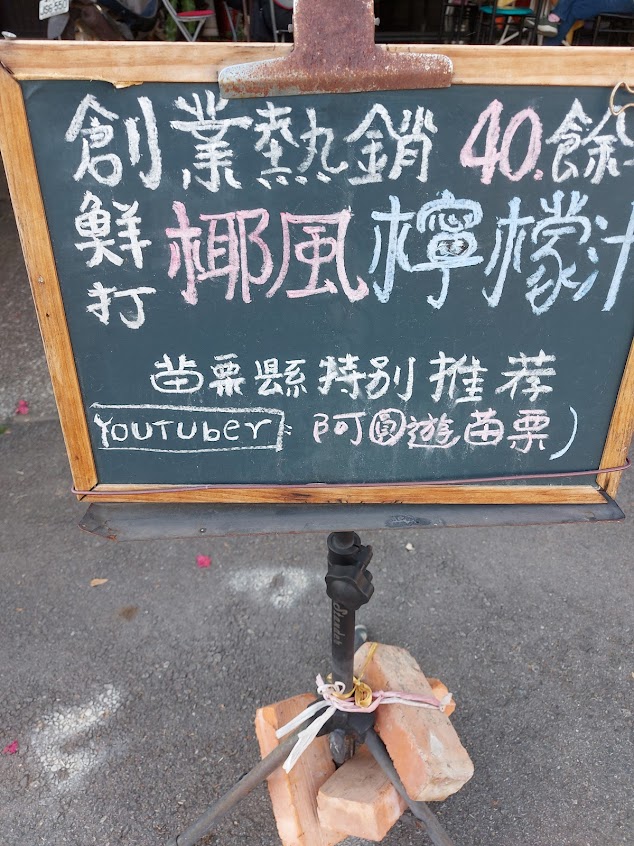 創業熱銷 40.餘
鮮打
椰風檸檬汁
苗栗縣特別推荐
YouTuber: 阿圓遊苗栗)